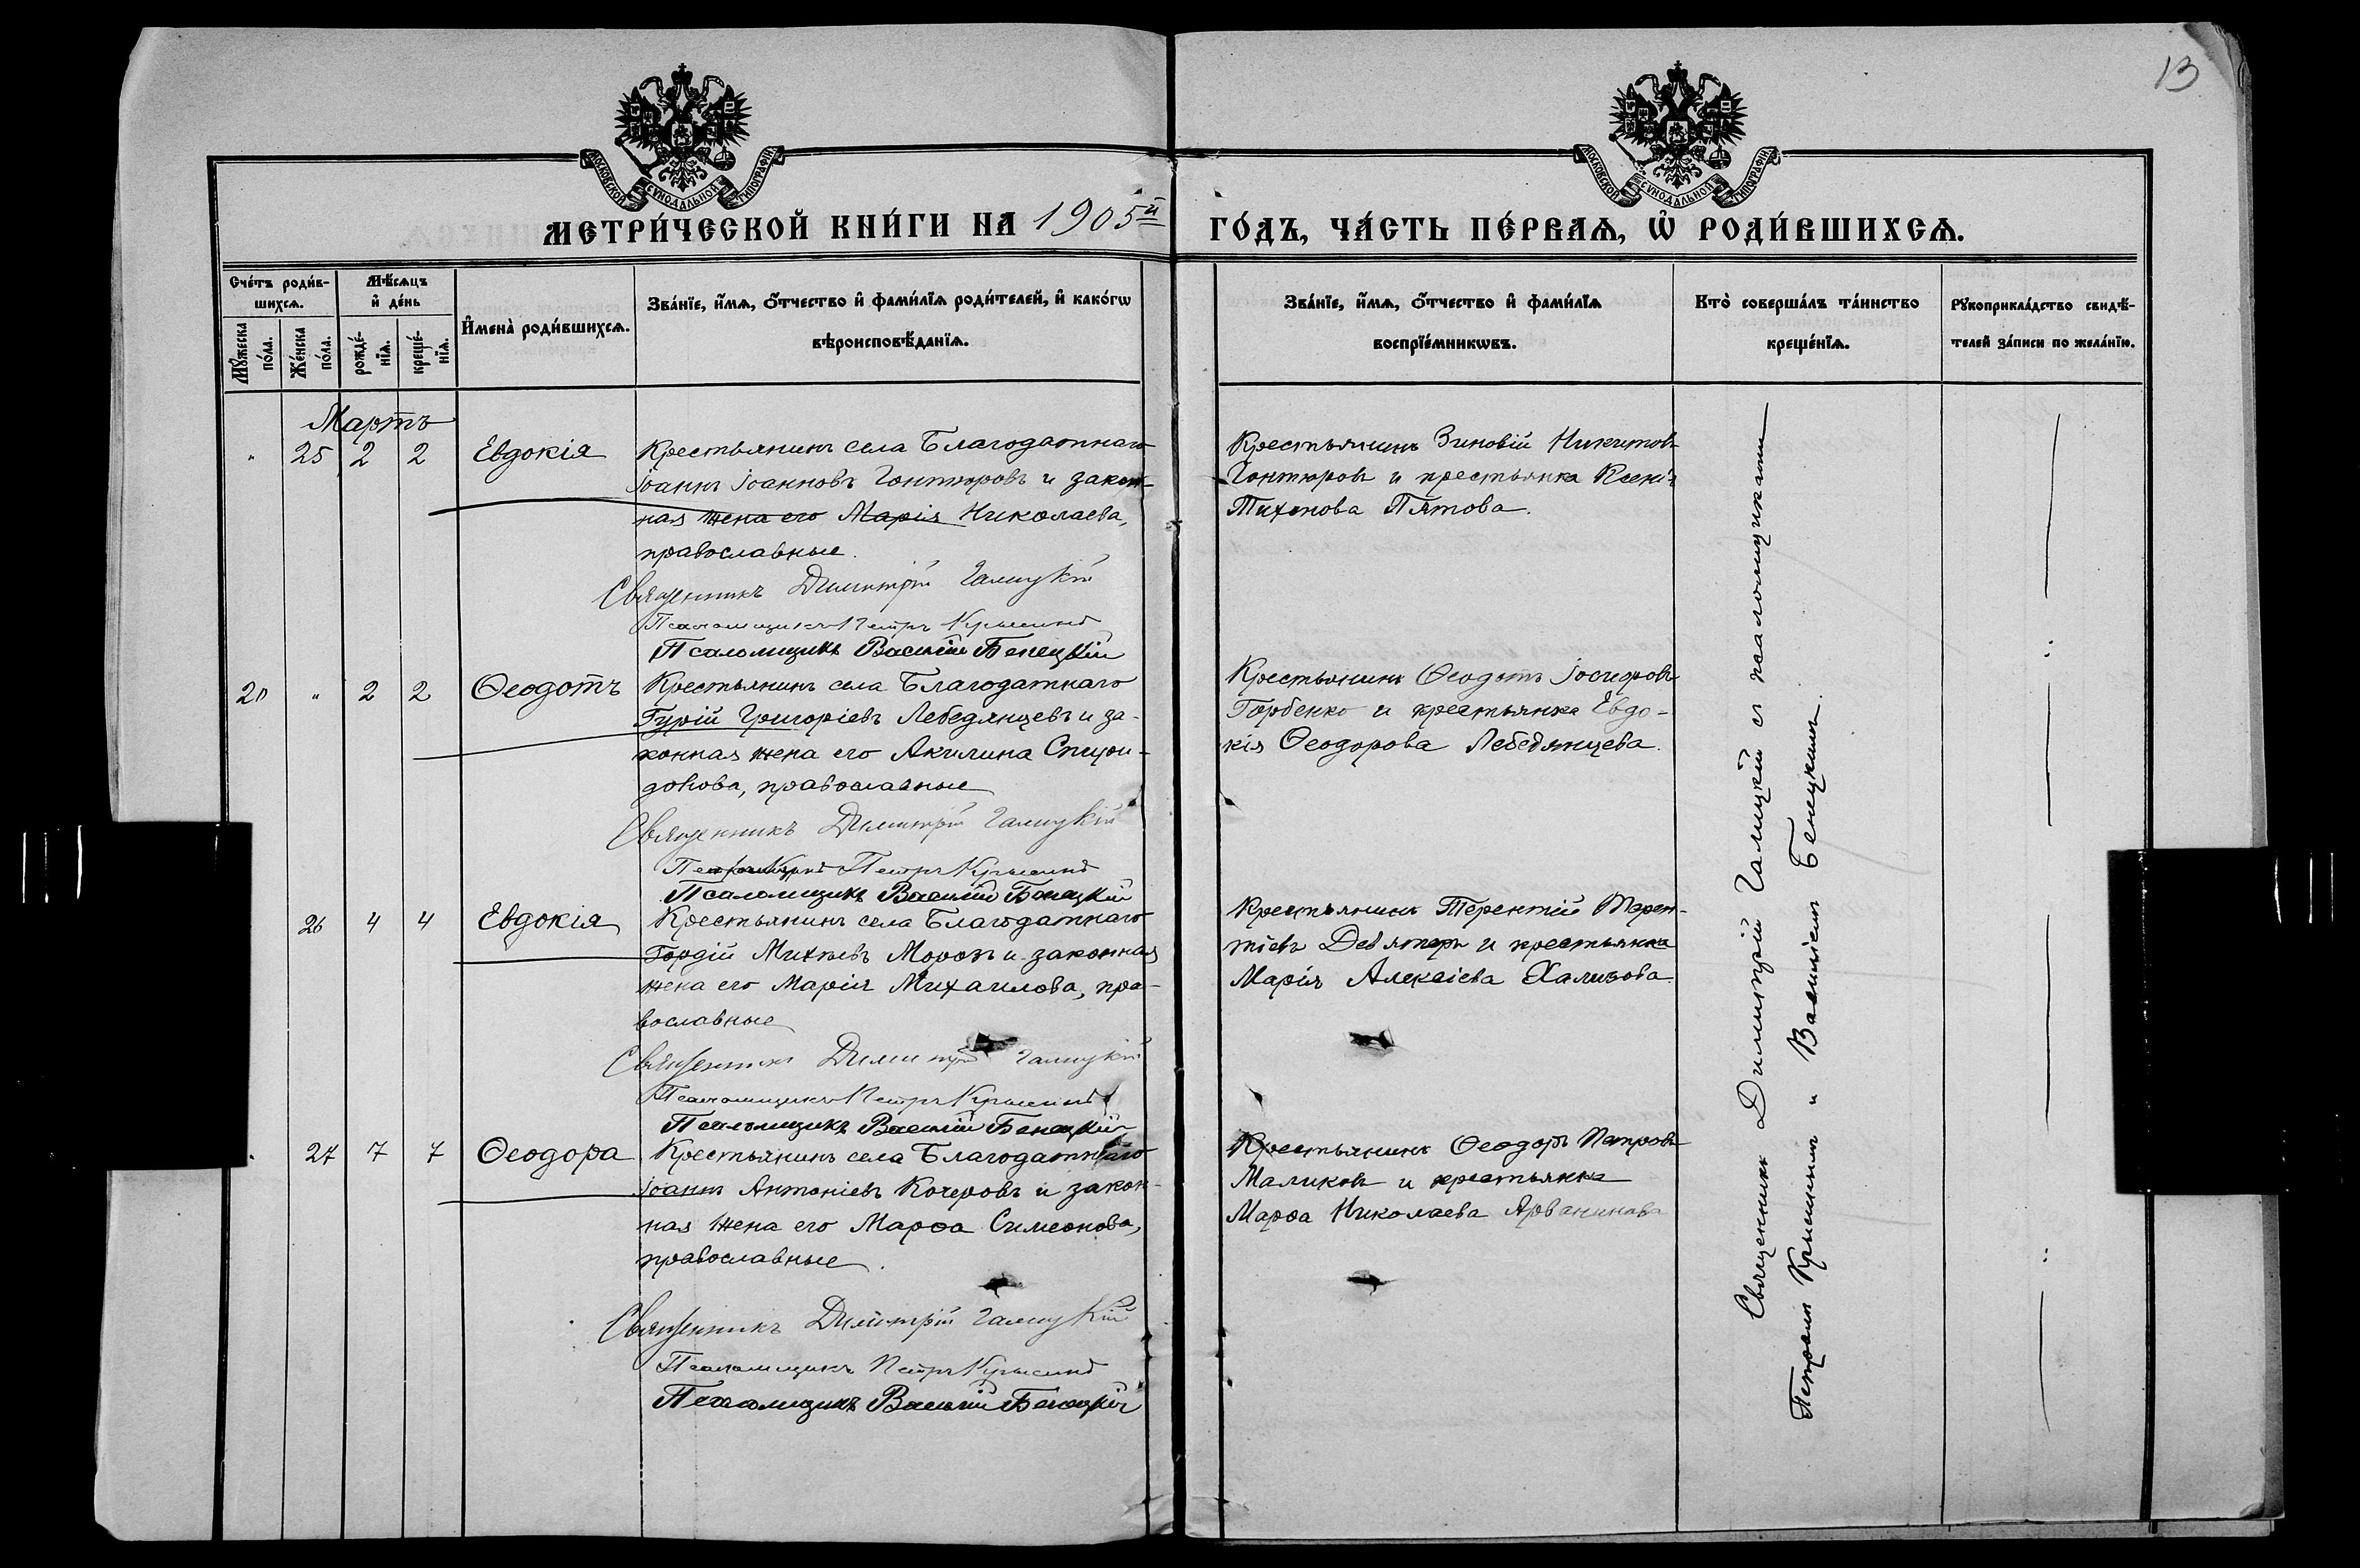 13
МОСКОВСКОЙ СѴНОДАЛЬНОЙ ТИПОГРАФІИ.
МОСКОВСКОЙ СѴНОДАЛЬНОЙ ТИПОГРАФІИ.
МЕТРИ́ЧЕСКОЙ КНИ́ГИ НА 1905й ГО́ДЪ, ЧА́СТЬ ПЕ́РВАѦ, Ѽ РОДИ́ВШИХСѦ.
Сче́тъ роди́в-
шихсѧ.
Мꙋ́жеска
по́ла.
Же́нска
по́ла.
Мѣ́сѧцъ
и҆ де́нь
рожде́-
нїѧ.
креще́-
нїѧ.
И҆мена̀ роди́вшихсѧ.
Зва́нїе, и҆́мѧ, ѻ҆́тчество и҆ фами́лїѧ роди́телей, и҆ како́гѡ
вѣроисповѣ́данїѧ.
Зва́нїе, и҆́мѧ, ѻ҆́тчество и҆ фами́лїѧ
воспрїе́мникѡвъ.
Кто̀ соверша́лъ та́инство
креще́нїѧ.
Рꙋкоприкла́дство свидѣ́-
телей за́писи по жела́нїю.
Мартъ
" 25 2 2 Евдокія
Крестьянинъ села Благодатнаго
Іоаннъ Іоанновъ Гонтюровъ и закон-
ная жена его Марія Николаева,
православные.
Священникъ Димитрій Галицкій
Псаломщикъ Петръ Крысинъ
Псаломщикъ Василій Бенецкій
Крестьянинъ Зиновій Никитовъ
Гонтюровъ и крестьянка Ксенія
Тихонова Пятова.
20 " 2 2 Ѳеодотъ
Крестьянинъ села Благодатнаго
Гурій Григоріевъ Лебедянцевъ и за-
конная жена его Акилина Спири-
донова, православные
Священникъ Димитрій Галицкій
Петръ Крысинъ
Псаломщикъ Василій Бенецкій
Крестьянинъ Ѳеодотъ Іосифовъ
Горбенко и крестьянка Евдо-
кія Ѳеодорова Лебедянцева.
26 4 4 Евдокія
Крестьянинъ села Благодатнаго
Гордій Михѣевъ Морозъ и законная
жена его Марія Михаилова, пра-
вославные
Священникъ Димитрій Галицкій
Псаломщикъ Петръ Крысинъ
Псаломщикъ Василій Бенецкій
Крестьянинъ Терентій Терен-
тіевъ и крестьянка
Марія Алексіева Хализова.
27 7 7 Ѳеодора
Крестьянинъ села Благодатнаго
Іоаннъ Антоніевъ Кочеровъ и закон-
ная жена его Марѳа Симеонова,
православные.
Священникъ Димитрій Галицкій
Псаломщикъ Петръ Крысинъ
Псаломщикъ Василій Бенецкій
Крестьянинъ Ѳеодоръ Петровъ
Маликовъ и крестьянка
Марѳа Николаева
Священникъ Димитрій Галицкій съ псаломщиками
Петромъ Крысинымъ и Василіемъ Бенецкимъ.